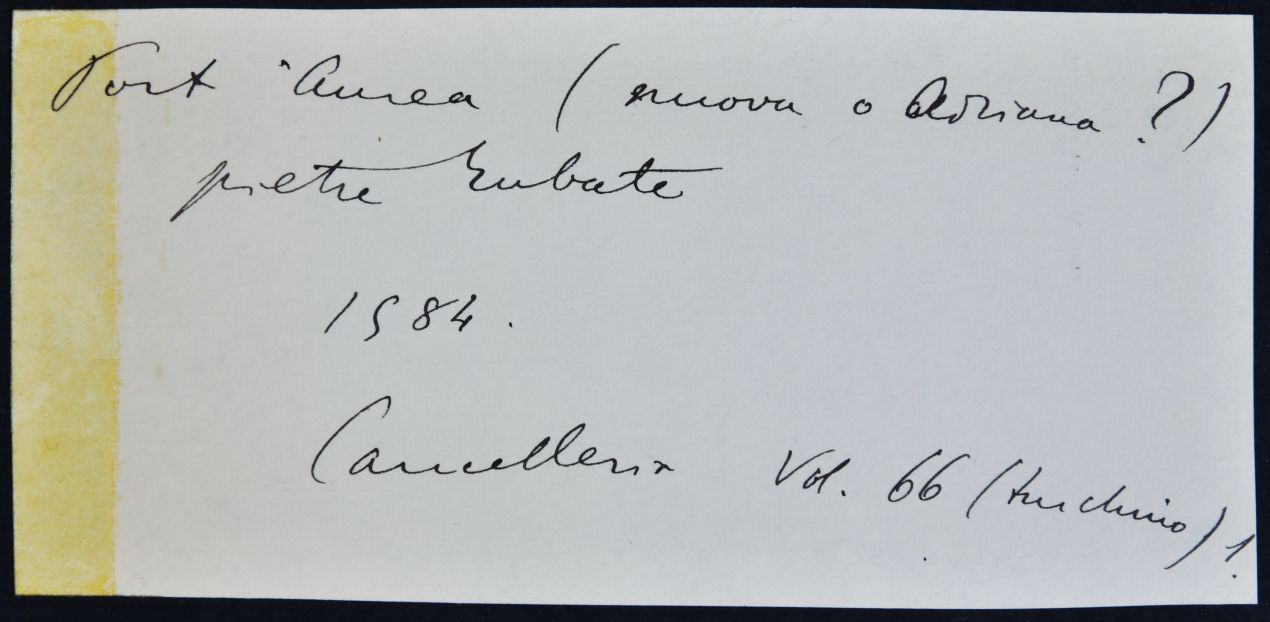 Port'Aurea (nuova o Adriana ?)
pietre rubate
1584.
Cancelleria Vol. 66 (turchino) 1.